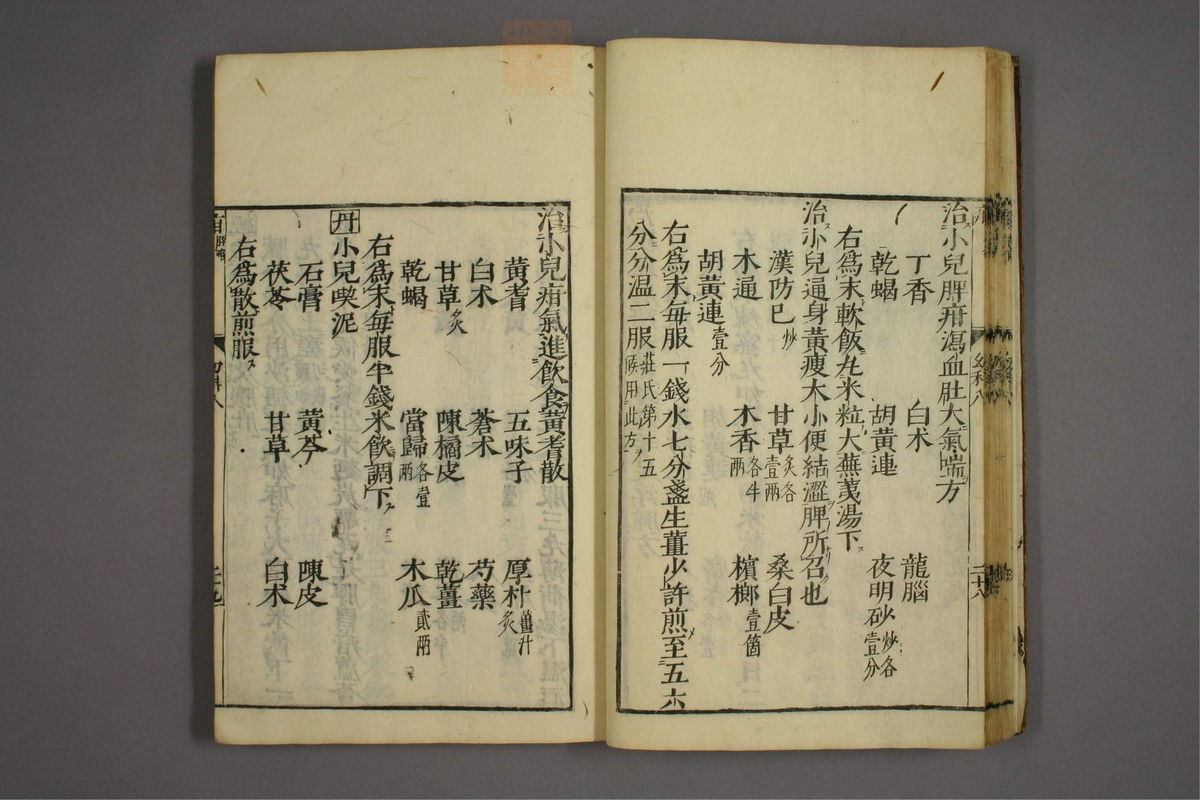 治小兒脾疳瀉血肚大氣喘方
丁香 白朮 龍腦
乾蝎 胡黃連 夜明砂炒各壹分
右爲末軟飯丸米粒大蕪荑湯下
治小兒遍身黃瘦大小便結澀脾所召也
漢防巳炒 甘草炙各壹兩 桑白皮
木通 木香各半兩 檳榔壹箇
胡黃連壹分
右爲末每服一錢水七分盞生薑少許煎至五六
分分溫二服莊氏第十五候用此方
幼科八
二十八
治小兒疳氣進飲食黃耆散
黃耆 五味子 厚朴薑汁炙
白朮 蒼朮 芍藥
甘草炙 陳橘皮 乾薑
乾蝎 當歸各壹兩 木瓜貳兩
右爲末每服半錢米飲調下
丹小兒喫泥
石膏 黃芩 陳皮
茯苓 甘草 白朮
右爲散煎服